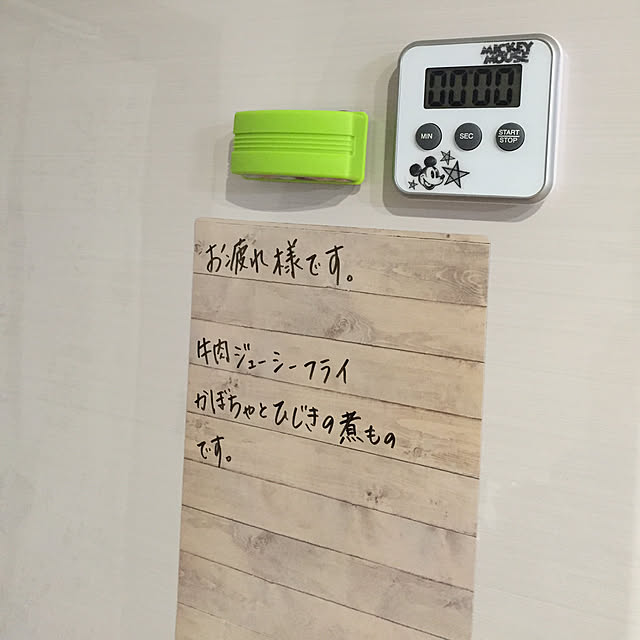 MICKEY
MOUSE
00:00
MIN
SEC
START
STOP
お疲れ様です。
牛肉ジューシーフライ
かぼちゃとひじきの煮もの
です。